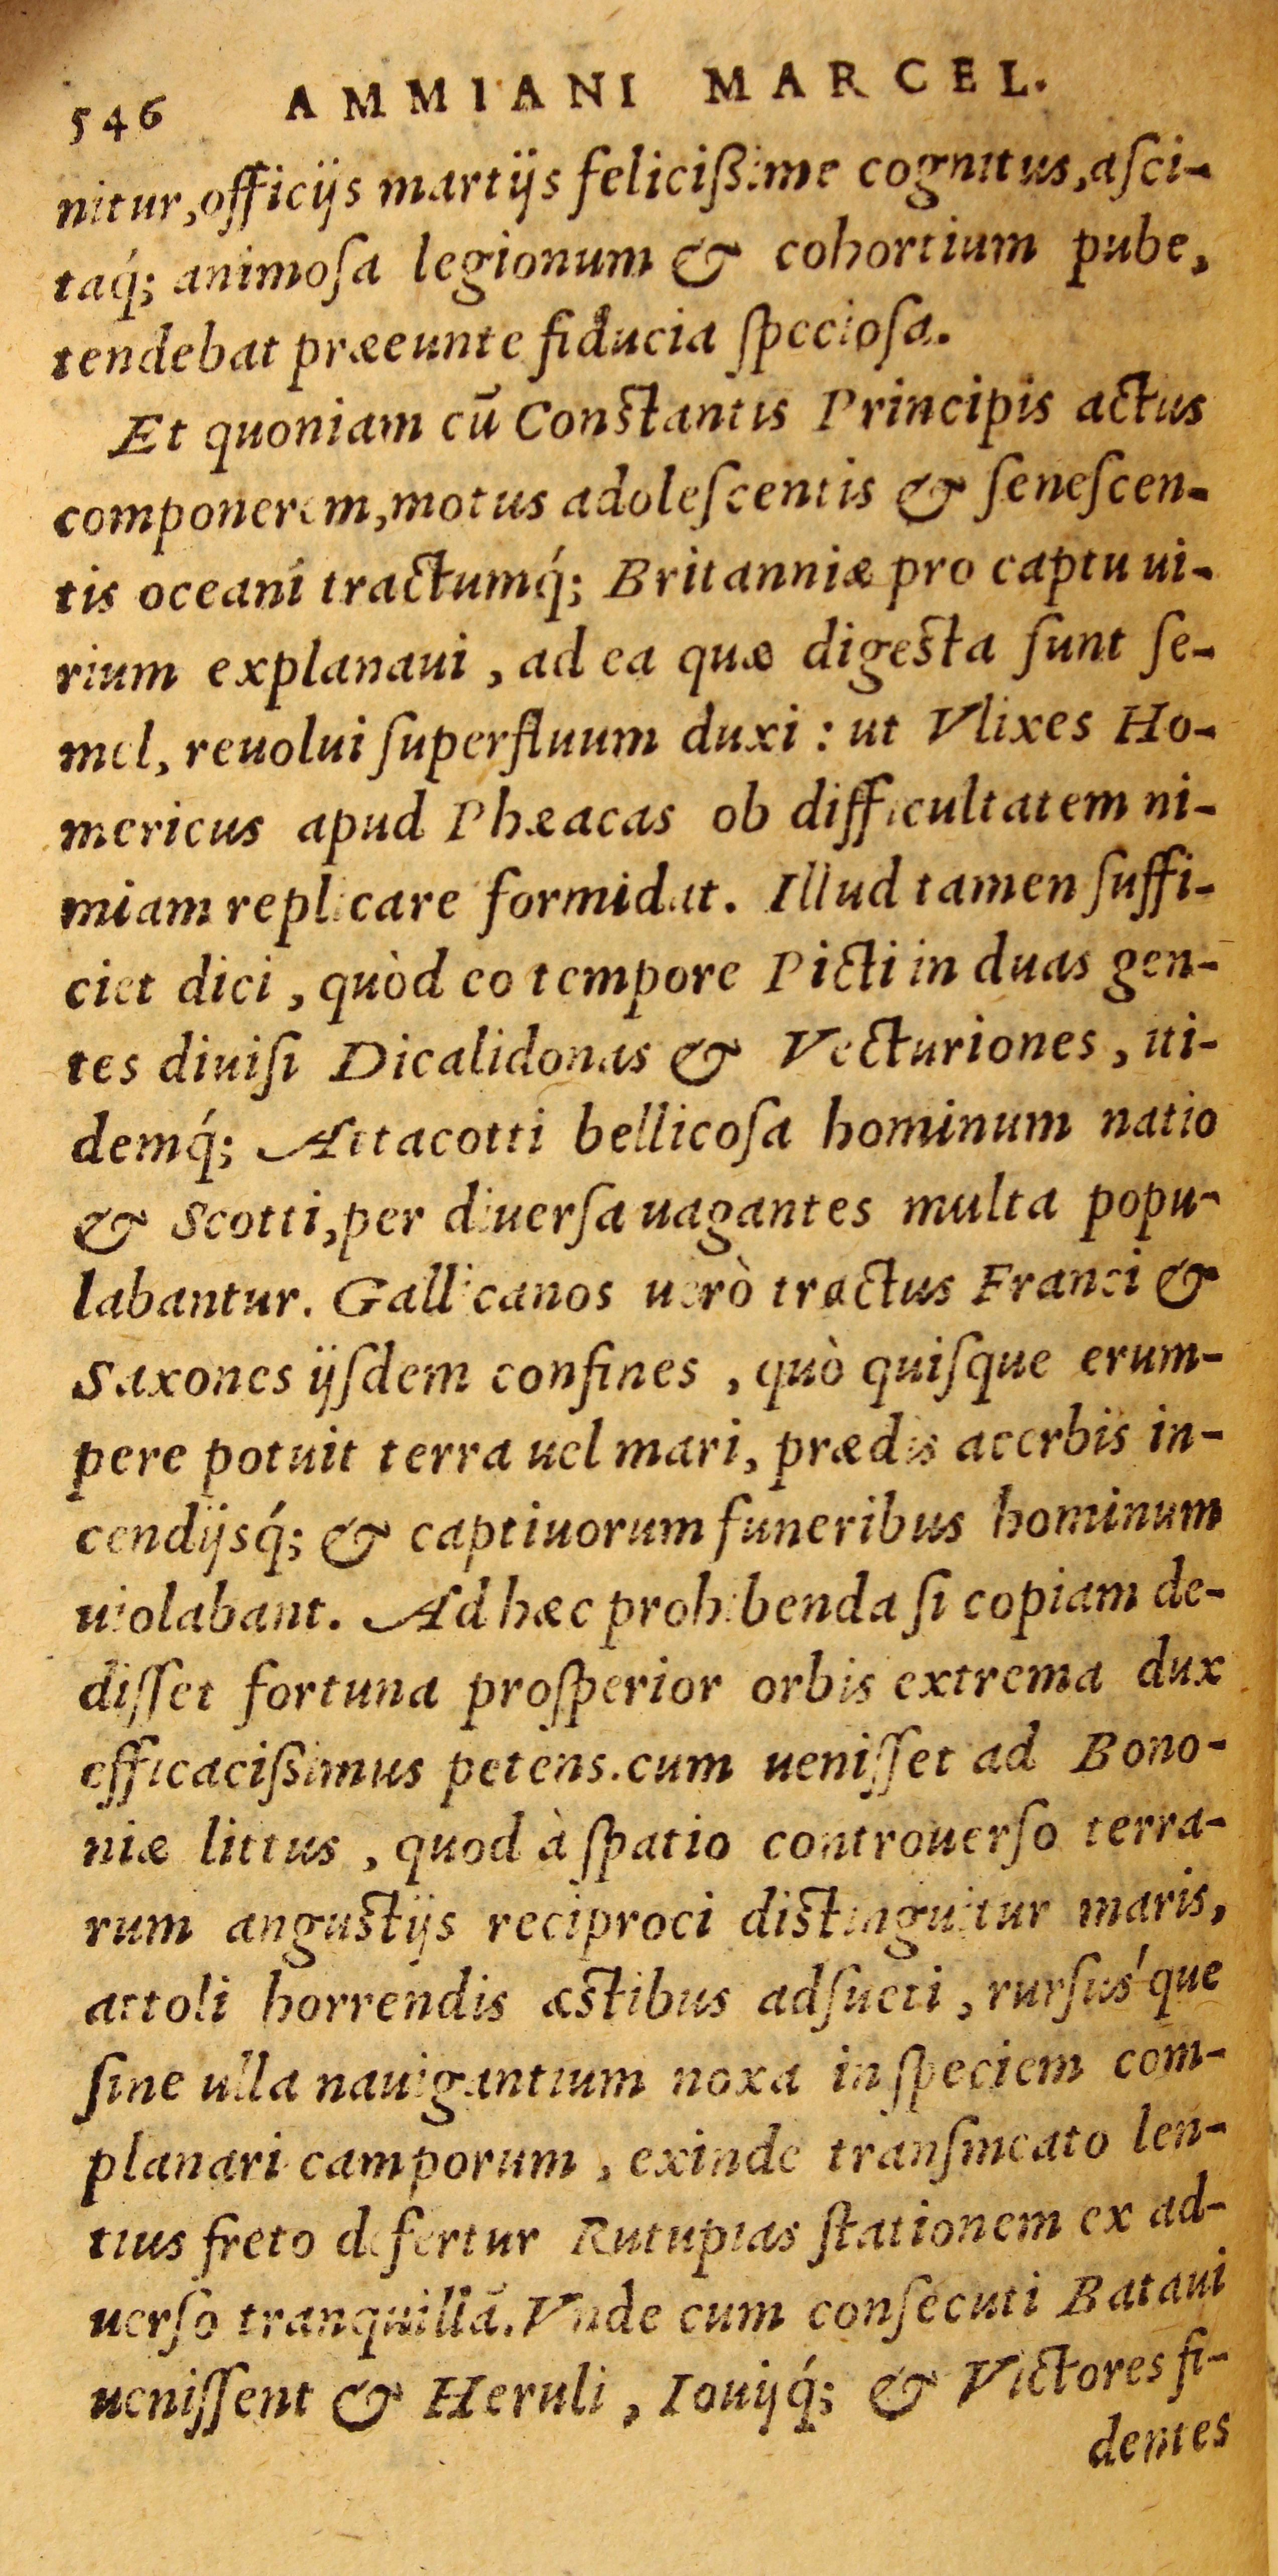 546 AMMIANI MARCEL.
nitur, officijs martijs feliciſsime cognitus, aſci-
taq́; animoſa legionum & cohortium pube,
tendebat præeunte fiducia ſpecioſa.
Et quoniam cū Constantis Principis actus
componerem, motus adoleſcentis & ſeneſcen-
tis oceani tractumq́; Britanniæ pro captu ui-
rium explanaui, ad ea quæ digesta ſunt ſe-
mel, reuolui ſuperfluum duxi: ut Vlixes Ho-
mericus apud Phæacas ob difficultatem ni-
miam replicare formidat. Illud tamen ſuffi-
ciet dici, quòd eo tempore Picti in duas gen-
tes diuiſi Dicalidonas & Vecturiones, iti-
demq́; Attacotti bellicoſa hominum natio
& Scotti, per diuerſa uagantes multa popu-
labantur. Gallicanos uerò tractus Franci &
Saxones ijſdem confines, quò quiſque erum-
pere potuit terra uel mari, prædis acerbis in-
cendijsq́; & captiuorum funeribus hominum
uiolabant. Ad hæc prohibenda ſi copiam de-
diſſet fortuna proſperior orbis extrema dux
efficaciſsimus petens. cum ueniſſet ad Bono-
niæ littus, quod à ſpatio controuerſo terra-
rum angustijs reciproci distinguitur maris,
attoli horrendis æstibus adſueti, rurſuśque
ſine ulla nauigantium noxa in ſpeciem com-
planari camporum, exinde tranſmeato len-
tius freto defertur Rutupias ſtationem ex ad-
uerſo tranquillā. Vnde cum conſecuti Bataui
ueniſſent & Heruli, Iouijq́; & Victores fi-
dentes